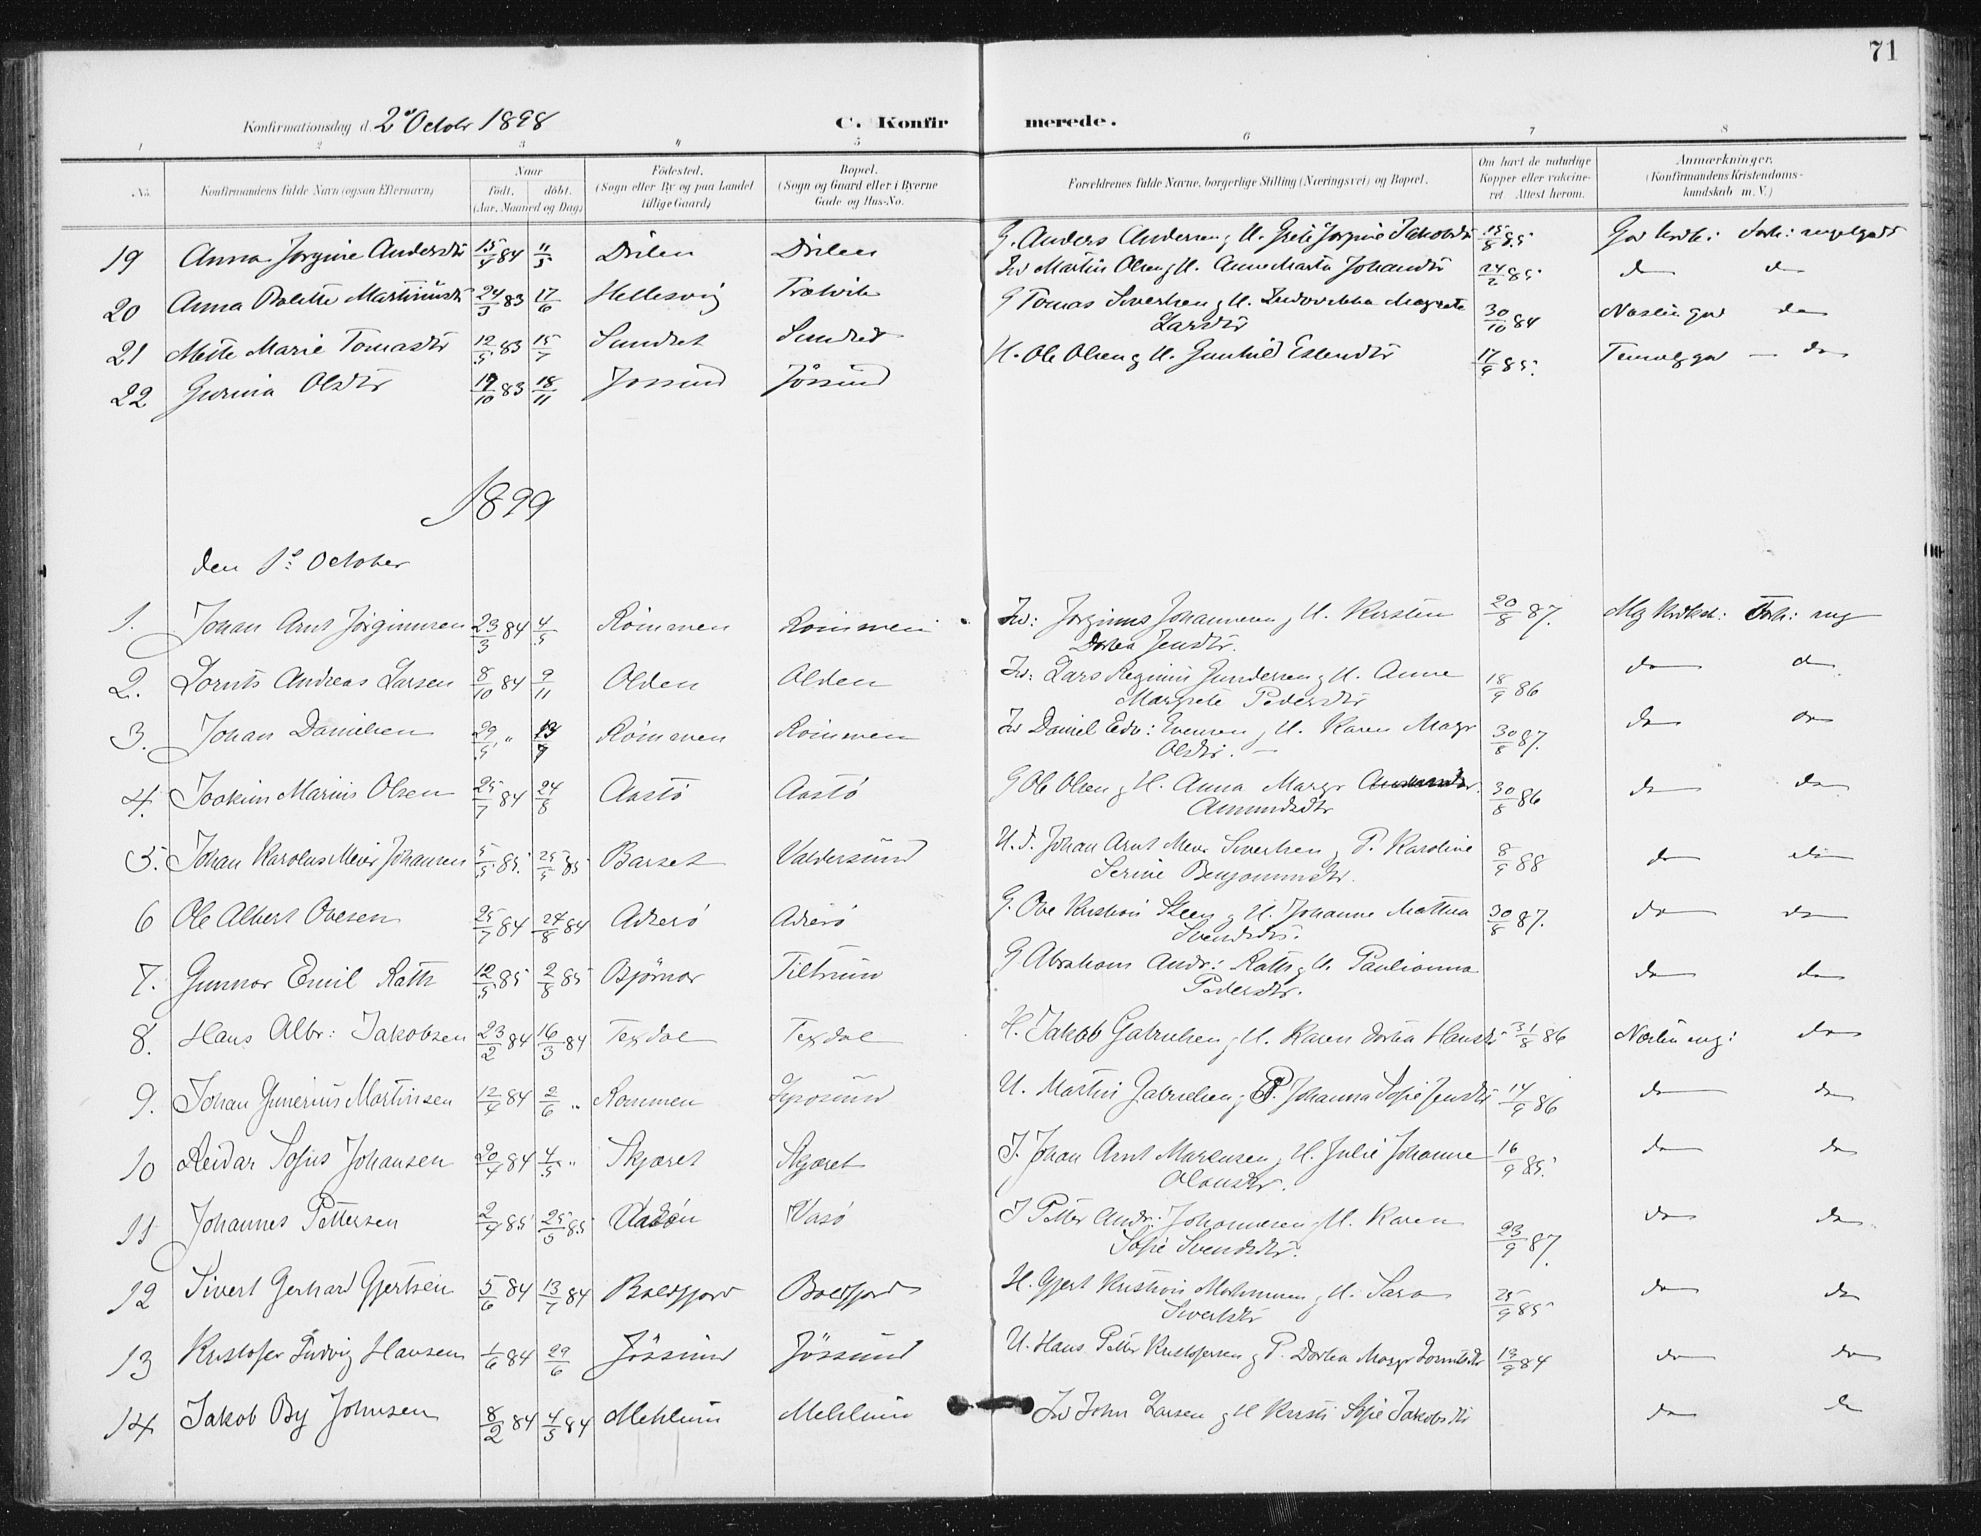 71
Konfirmationsdag d. 2 Octobr 1898 C. Konfirmerede.
1 2 3 4 5 6 7 8
No. Konfirmandens fulde Navn (ogsaa Efternavn) Naar født, døbt. (Aar, Maaned og Dag) Fødested. (Sogn eller By og paa Landet tillige Gaard) Bopæl. (Sogn og Gaard eller i Byerne Gade og Hus-No. Forældrenes fulde Navne, borgerlige Stilling (Næringsvei) og Bopæl. Om havt de naturlige Kopper eller vaccineret. Attest herom. Anmærkninger. (Konfirmandens Kristendomskundskab m. V.)
19 Anna Jørgine Andersdtr 15/4 84 11/5 Drilen Drilen G. Anders Andersen, H. Grete Jørgine Jakobsdtr 15/8 85
20 Anna Bolette Martinusdtr 24/3 83 17/6 Hellesvig Trælvik Martin Olsen, H. Anne Marta Johansdtr 24/2 85 do do
21 Mette Marie Tomasdtr 12/5 83 15/7 Sundet Sundet G Tomas Sivertsen, H. Ludovikka Margrete Larsdtr 30/10 84 do
22 Gurina Olsdtr 17/10 83 18/11 Jøssund Jøssund H. Ole Olsen, H. Gunhild Eslendtr 17/9 85. do
1899
den 1ste October
1. Johan Arnt Jørginusen 23/3 84 4/5 Rømmen Rømmen Jørginus Johannesen, H. Kirsten Dortea Jensdtr. 20/8 87.
2. Lornts Andreas Larsen 8/10 84 9/11 Olden Olden Lars Reginus Gundersen, H. Anne Margrete Pedersdtr 18/9 86 do do
3. Johan Danielsen 29/5 " Rømmen Rømmen Daniel Edv: Evensen, H. Karen Margr Olsdtr. 30/8 87. do do
4. Joakim Marius Olsen 25/7 84 24/8 Aastø Aastø G Ole Olsen, H. Anna Margr Amundsdtr 30/8 86 do do
5. Johan Karolus Meier Johansen 5/5 85. 25/5 85 Barset Valdersund U. F. Johan Arnt Meier Sivertsen, P. Karoline Serine Benjaminsdtr. 8/9 88 do do
6 Ole Albert Ovesen 25/7 84 24/8 84 Asserø Asserø G. Ove Kristian Steen, H. Johanne Mathea Svendsdtr. 30/8 87. do do
7. Gunnar Emil Rath 12/5 85 2/8 85 Bjørnør Tiltrum G Abraham Andr: Rath, H. Paulianna Pedersdtr. do do
8. Hans Albr: Jakobsen 23/2 84 16/3 84 Texdal Texdal H. Jakob Gabrielsen, H. Karen Dortea Hansdtr 31/8 86 do
9. Johan Gunerius Martinsen 12/4 84 2/6 " Rømmen Lysøsund U. Martin Gabrielsen, P. Johanna Sofie Jensdtr 14/9 86 do do
10 Reidar Sofus Johansen 20/4 84 4/5 " Skjæret Skjæret J. Johan Arnt Markusen, H. Julie Johanne Olausdtr. 16/9 85. do do
11 Johannes Pettersen 2/4 85 25/5 85 Vasø J Petter Andr: Johannesen, H. Karen Sofie Svendsdtr. 23/9 87. do do
12 Sivert Gerhard Gjertsen 5/6 84 13/7 84 Boldfjord Boldfjord H. Gjert Kristian Mortensen, H. Sara Sivertsdtr 25/9 85 do do
13 Kristofer Ludvig Hansen 1/6 84 29/6 Jøssund Jøssund U. Hans Petter Kristofersen, P. Dortea Margr Lorntsdtr 19/9 84 do do
14 Jakob By Johnsen 8/2 84 4/5 84 Mehlum Mehlum John Larsen, H Kirsti Sofie Jakobsdtr do do